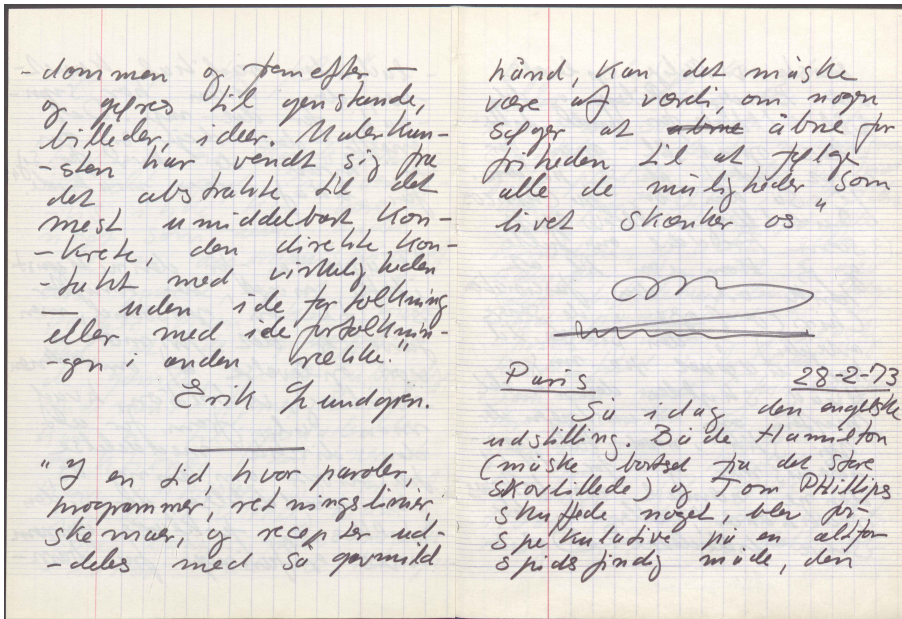 -dommen og fremefter —
og gøres til genstande,
billeder, ideer. Malerkun-
-sten har vendt sig fra
det abstrakte til det
mest umiddelbart kon-
-krete, den direkte kon-
-takt med virkeligheden
— uden idefortolkning
eller med idefortolknin-
-gen i anden række."
Erik
"I en tid, hvor paroler,
programmer, retningslinier,
skemaer, og recepter ud-
-deles med så gavmild
hånd, kan det måske
være af værdi, om nogen
søger at åbne for
friheden til at følge
alle de muligheder som
livet skænker os"
Paris 28-2-73
Så idag den engelske
udstilling. Både Hamilton
(måske bortset fra det store
skovbillede) og Tom PHillips
skuffede noget, blev for
spekulative på en altfor
spidsfindig måde, den